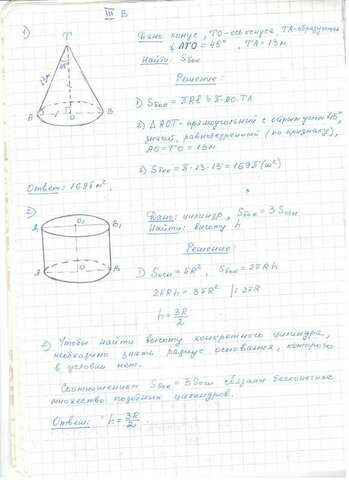 III В
1)
Дано: конус, ТО-ось конуса, ТА-образующая
∠АТО = 45°, ТА = 13м
Найти: Sбок
Решение:
T
13м
45°
A
O
B
1) Sбок = πRl = π·АО·ТА
2) △АОТ - прямоугольный с острым углом 45°,
значит, равнобедренный (по признаку),
АО = ТО = 13м
3) Sбок = π·13·13 = 169π (м²)
Ответ: 169π м².
2)
Дано: цилиндр, Sбок = 3Sосн
Найти: высоту h
Решение:
A₁
O₁
B₁
A
O
B
1) Sосн = πR², Sбок = 2πRh
2πRh = 3πR² |: 2πR
h = 3R/2
2) Чтобы найти высоту конкретного цилиндра,
необходимо знать радиус основания, которого
в условии нет.
Соотношением Sбок = 3Sосн связаны бесконечное
множество подобных цилиндров.
Ответ: h = 3R/2